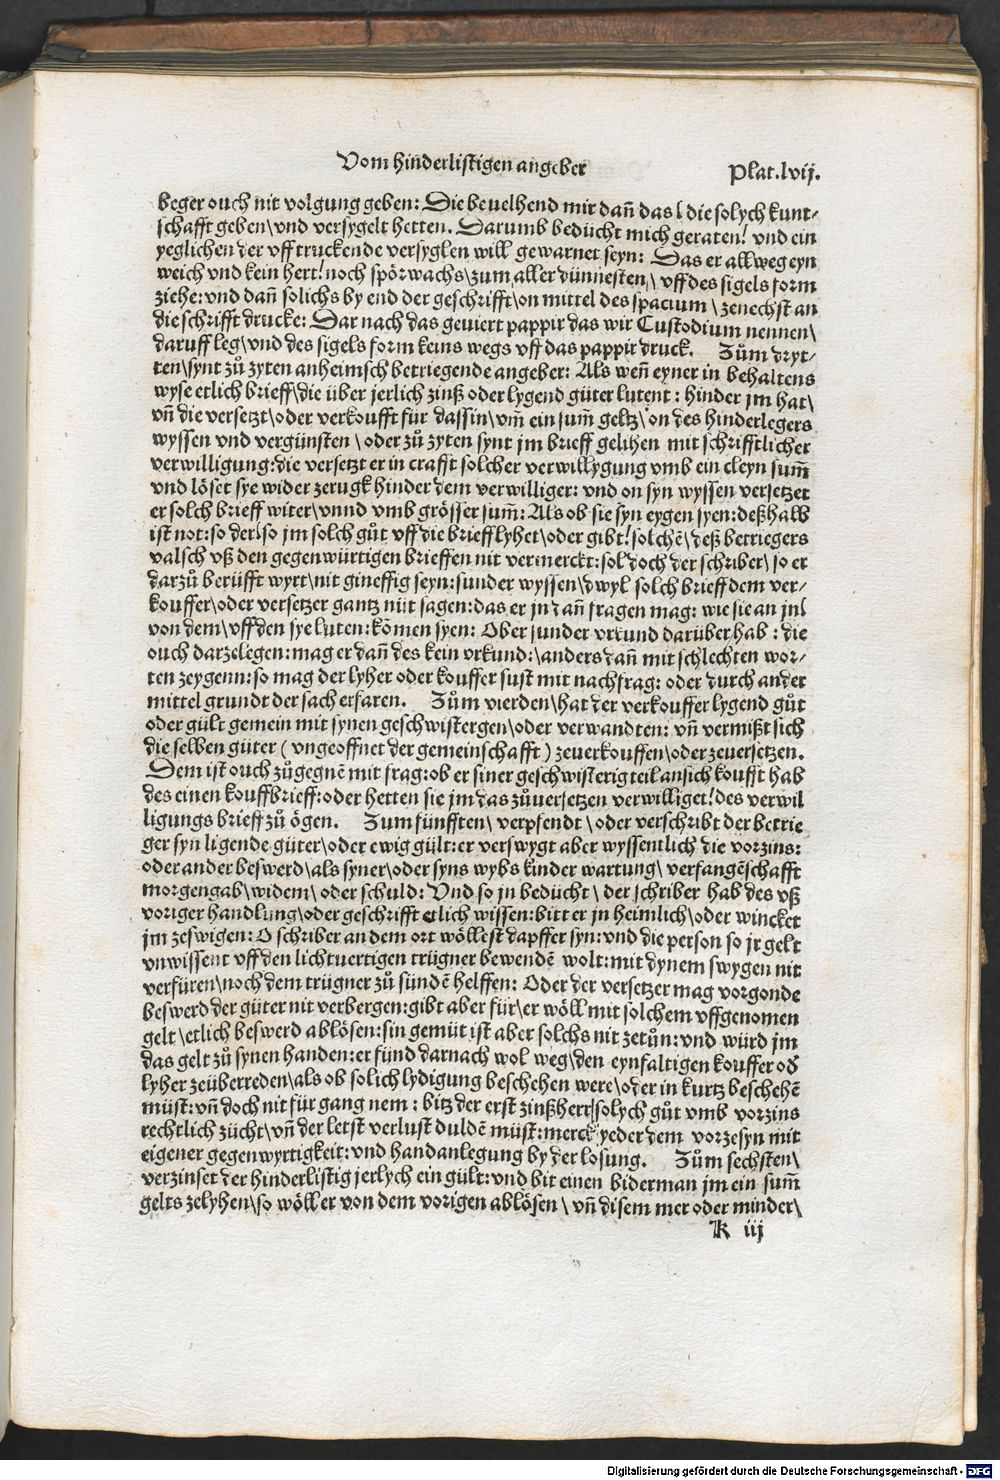 Vom hinderlistigen angeber
Plat.lvij.
beger ouch nit volgung geben: Die bevelhend mir dañ das⌊die solych kunt⸗
schafft geben\vnd versygelt hetten. Darumb bedücht mich geraten! vnd ein
yeglichen der vff truckende versyglen will gewarnet seyn: Das er allweg eyn
weich vnd kein hert!noch spörwachs\zum aller dünnesten\ vff des sigels form
ziehe:vnd dañ solichs by end der geschrifft\on mittel des spacium \ zenechst an
die schrifft drucke: Dar nach das geviert pappir das wir Custodium nennen\
daruff leg\vnd des sigels form keins wegs vff das pappir druck. Zům dryt⸗
ten\synt zů zyten anheimsch betriegende angeber: Als weñ eyner in behaltens
wyse etlich brieff\die über jerlich zinß oder lygend güter lutent : hinder jm hat\
vñ die versetzt\oder verkoufft für dassin\vm̃ ein sum̃ geltz\on des hinderlegers
wyssen vnd vergünsten \ oder zů zyten synt jm brieff gelihen mit schrifftlicher
verwilligung:die versetzt er in crafft solcher verwillygung vmb ein cleyn sum̃
vnd löset sye wider zerugk hinder dem verwilliger: vnd on syn wyssen versetzet
er solch brieff witer\vnnd vmb grösser sum̃: Als ob sie syn eygen syen:deßhalb
ist not:so der⌊so jm solch gůt vff die brieff lyhet\oder gibt!solchẽ\deß betriegers
valsch vß den gegenwürtigen brieffen nit vermerckt:sol doch der schriber\ so er
darzů berüfft wyrt\nit gineffig seyn:sunder wyssen\dwyl solch brieff dem ver⸗
kouffer\oder versetzer gantz nüt sagen:das er jn dañ fragen mag: wie sie an jn⌊
von dem\vff den sye luten:kõmen syen: Ober sunder vrkund darüber hab : die
ouch darzelegen:mag er dañ des kein vrkund:\anders dañ mit schlechten wor⸗
ten zeygenn:so mag der lyher oder kouffer sust mit nachfrag: oder durch ander
mittel grundt der sach erfaren. Zům vierden\hat der verkouffer lygend gůt
oder gült gemein mit synen geschwistergen\oder verwandten: vñ vermißt sich
die selben güter ( vngeoffnet der gemeinschafft ) zeverkouffen\oder zeversetzen.
Dem ist ouch zůgegnẽ mit frag:ob er siner geschwisterig teil an sich koufft hab
des einen kouffbrieff:oder hetten sie jm das zůversetzen verwilliget!des verwil
ligungs brieff zů ögen. Zum fünfften\ verpfendt \ oder verschribt der betrie
ger syn ligende güter\oder ewig gült:er verswygt aber wyssentlich die vorzins:
oder ander beswerd\als syner\oder syns wybs kinder wartung\ verfangẽschafft
morgengab\widem\ oder schuld: Vnd so jn bedücht \ der schriber hab des vß
voriger handlung\oder geschrifft etlich wissen:bitt er jn heimlich\oder wincket
jm zeswigen: O schriber an dem ort wöllest dapffer syn:vnd die person so jr gelt
vnwissent vff den lichtvertigen trügner bewendẽ wolt:mit dynem swygen nit
verfüren\noch dem trügner zů sündẽ helffen: Oder der versetzer mag vorgonde
beswerd der güter nit verbergen:gibt aber für\er wöll mit solchem vffgenomen
gelt\etlich beswerd ablösen:sin gemüt ist aber solchs nit zetůn:vnd würd jm
das gelt zů synen handen:er fünd darnach wol weg\den eynfaltigen kouffer ođ
lyher zeüberreden\als ob solich lydigung beschehen were\oder in kurtz beschehẽ
müst:vñ doch nit für gang nem : bitz der erst zinßherr⌊solych gůt vmb vorzins
rechtlich zücht\vñ der letst verlust duldẽ müst:merck yeder dem vorzesyn mit
eigener gegenwyrtigkeit:vnd handanlegung by der losung. Zům sechsten\
verzinset der hinderlistig jerlych ein gült:vnd bit einen biderman jm ein sum̃
gelts zelyhen\so wöll er von dem vorigen ablösen \ vñ disem mer oder minder\
K iij
Digitalisierung gefördert durch die Deutsche Forschungsgemeinschaft - DFG